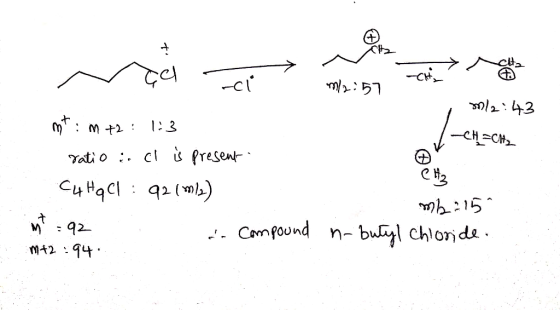 +
Cl
−Cl•
⊕
CH2
m/2 : 57
−CH2
CH2
⊕
m/2 : 43
−CH2=CH2
⊕
CH3
m/2 : 15
m+ : m+2 : 1:3
ratio ∴ Cl is present.
C4H9Cl : 92 (m/2)
m+ = 92
m+2 : 94.
∴ Compound n-butyl chloride.